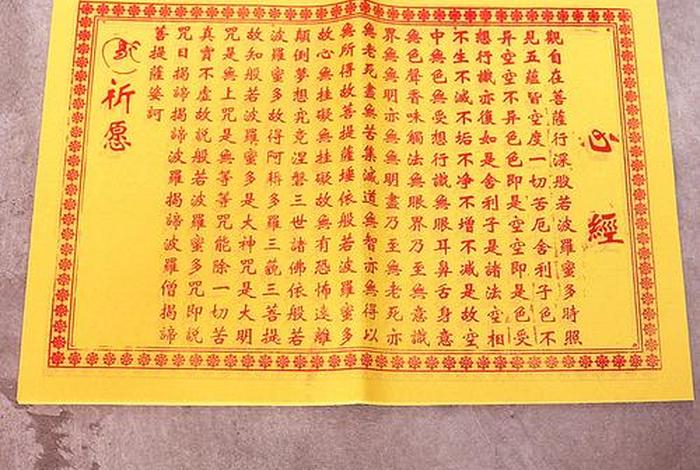 心經
觀自在菩薩行深般若波羅蜜多時照
見五蘊皆空度一切苦厄舍利子色不
異空空不異色色即是空空即是色受
想行識亦復如是舍利子是諸法空相
不生不滅不垢不净不增不減是故空
中無色無受想行識無眼耳鼻舌身意
無色聲香味觸法無眼界乃至無意識
界無無明亦無無明盡乃至無老死亦
無老死盡無苦集滅道無智亦無得以
無所得故菩提薩埵依般若波羅蜜多
故心無挂礙無挂礙故無有恐怖遠離
顛倒夢想究竟涅槃三世諸佛依般若
波羅蜜多故得阿耨多羅三藐三菩提
故知般若波羅蜜多是大神咒是大明
咒是無上咒是無等等咒能除一切苦
真實不虛故說般若波羅蜜多咒即說
咒曰揭諦揭諦波羅揭諦波羅僧揭諦
菩提薩婆訶
祈愿